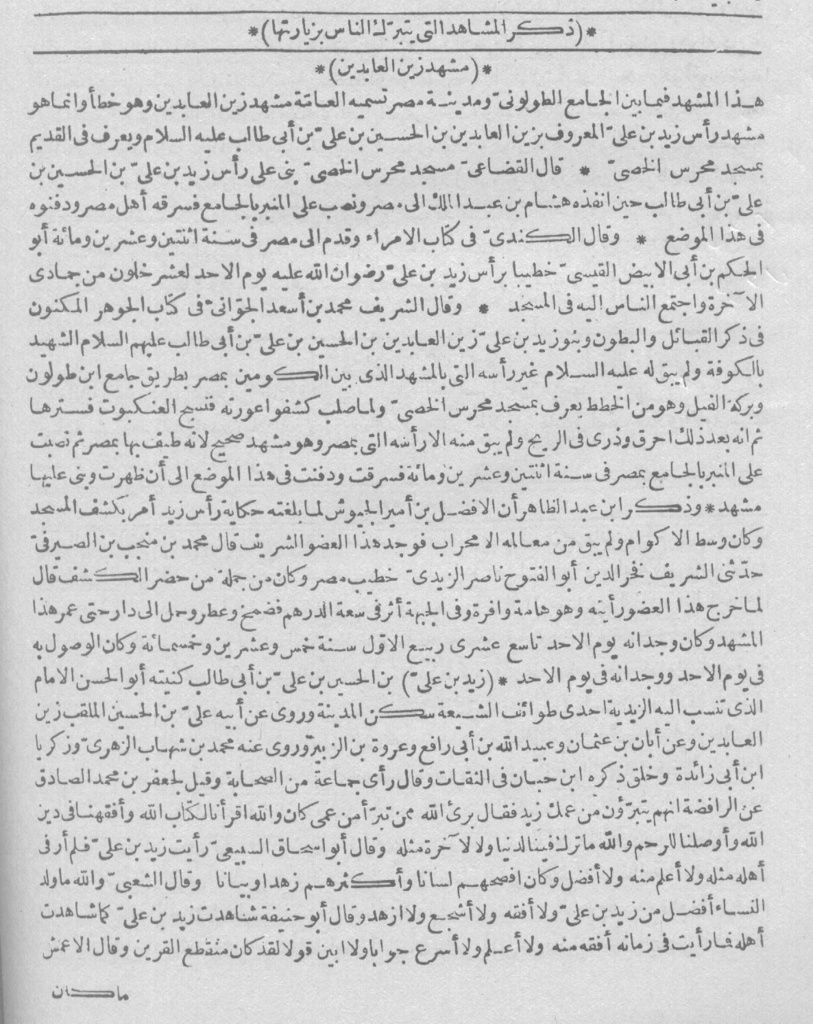 *(ذكر المشاهد التى يتبرّك الناس بزيارتها)*
*(مشهد زين العابدين)*
هذا المشهد فيما بين الجامع الطولونىّ ومدينة مصر تسميه العامّة مشهد زين العابدين وهو خطأ وانما هو
مشهد رأس زيد بن علىّ المعروف بزين العابدين بن الحسين بن علىّ بن أبى طالب عليه السلام ويعرف فى القديم
بمسجد محرس الخصىّ * قال القضاعىّ مسجد محرس الخصىّ بنى على رأس زيد بن علىّ بن الحسين بن
علىّ بن أبى طالب حين انفذه هشام بن عبد الملك الى مصر ونصب على المنبر بالجامع فسرقه أهل مصر ودفنوه
فى هذا الموضع * وقال الكندىّ فى كتاب الامراء وقدم الى مصر فى سنة اثنتين وعشرين ومائة أبو
الحكم بن أبى الابيض القيسىّ خطيبا برأس زيد بن علىّ رضوان الله عليه يوم الاحد لعشر خلون من جمادى
الآخرة واجتمع الناس اليه فى المسجد * وقال الشريف محمد بن أسعد الجوّانىّ فى كتاب الجوهر المكنون
فى ذكر القبائل والبطون وبنو زيد بن علىّ زين العابدين بن الحسين بن علىّ بن أبى طالب عليهم السلام الشهيد
بالكوفة ولم يبق له عليه السلام غير رأسه التى بالمشهد الذى بين الكومين بمصر بطريق جامع ابن طولون
وبركة الفيل وهو من الخطط يعرف بمسجد محرس الخصىّ ولما صلب كشفوا عورته فنسج العنكبوت فسترها
ثم انه بعد ذلك احرق وذرى فى الريح ولم يبق منه الا رأسه التى بمصر وهو مشهد صحيح لانه طيف بها بمصر ثم نصبت
على المنبر بالجامع بمصر فى سنة اثنتين وعشرين ومائة فسرقت ودفنت فى هذا الموضع الى أن ظهرت وبنى عليها
مشهد * وذكر ابن عبد الظاهر أن الافضل بن أمير الجيوش لما بلغته حكاية رأس زيد أمر بكشف المسجد
وكان وسط الاكوام ولم يبق من معالمه الا محراب فوجد هذا العضو الشريف قال محمد بن منجب بن الصيرفىّ
حدّثنى الشريف فخر الدين أبو الفتوح ناصر الزيدىّ خطيب مصر وكان من جملة من حضر الكشف قال
لما خرج هذا العضو رأيته وهو هامة وافرة وفى الجبهة أثر فى سعة الدرهم فضمخ وعطر وحمل الى دار حتى عمر هذا
المشهد وكان وجدانه يوم الاحد تاسع عشرى ربيع الاوّل سنة خمس وعشرين وخمسمائة وكان الوصول به
فى يوم الاحد ووجدانه فى يوم الاحد * (زيد بن علىّ) بن الحسين بن علىّ بن أبى طالب كنيته أبو الحسن الامام
الذى تنسب اليه الزيدية احدى طوائف الشيعة سكن المدينة وروى عن أبيه علىّ بن الحسين الملقب زين
العابدين وعن أبان بن عثمان وعبيد الله بن أبى رافع وعروة بن الزبير وروى عنه محمد بن شهاب الزهرىّ وزكريا
ابن أبى زائدة وخلق ذكره ابن حبان فى الثقات وقال رأى جماعة من الصحابة وقيل لجعفر بن محمد الصادق
عن الرافضة انهم يتبرّؤن من عمك زيد فقال برئ الله ممن تبرّأ من عمى كان والله اقرأنا لكتاب الله وأفقهنا فى دين
الله وأوصلنا للرحم والله ما ترك فينا لدنيا ولا لآخرة مثله وقال أبو اسحاق السبيعىّ رأيت زيد بن علىّ فلم أر فى
أهله مثله ولا أعلم منه ولا أفضل وكان افصحهم لسانا وأكثرهم زهدا وبيانا وقال الشعبىّ والله ما ولد
النساء أفضل من زيد بن علىّ ولا أفقه ولا أشجع ولا ازهد وقال أبو حنيفة شاهدت زيد بن علىّ كما شاهدت
أهله فما رأيت فى زمانه أفقه منه ولا أعلم ولا أسرع جوابا ولا ابين قولا لقد كان منقطع القرين وقال الاعمش
ما كان